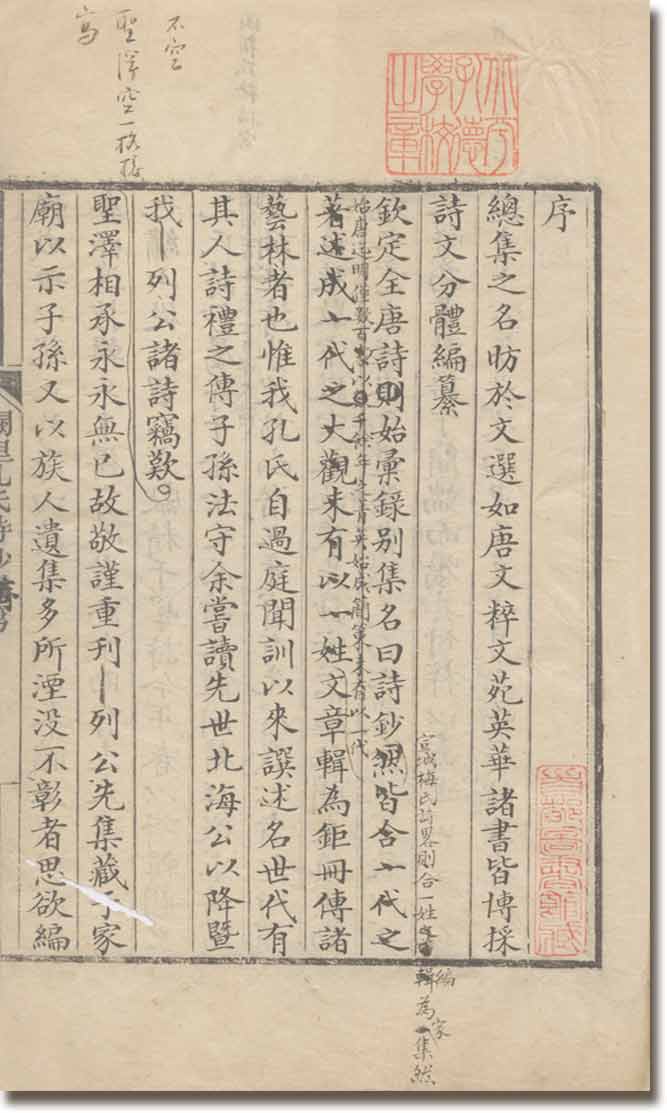 北平孔德學校之章
不空
聖澤空一格接
寫
序
總集之名昉於文選如唐文粹文苑英華諸書皆博採
詩文分體編纂
宣城梅氏詩畧則合一姓之編輯為一家集然
欽定全唐詩則始彙錄別集名曰詩鈔然皆合一代之
始唐迄明僅數百家以千餘年之菁英始成簡策未有以一代
著述成一代之大觀未有以一姓文章輯為鉅冊傳諸
藝林者也惟我孔氏自過庭聞訓以來譔述名世代有
其人詩禮之傳子孫法守余嘗讀先世北海公以降暨
我列公諸詩竊歎
聖澤相承永永無已故敬謹重刊列公先集藏于家
廟以示子孫又以族人遺集多所湮没不彰者思欲編
闕里孔氏詩鈔
首都圖書館藏